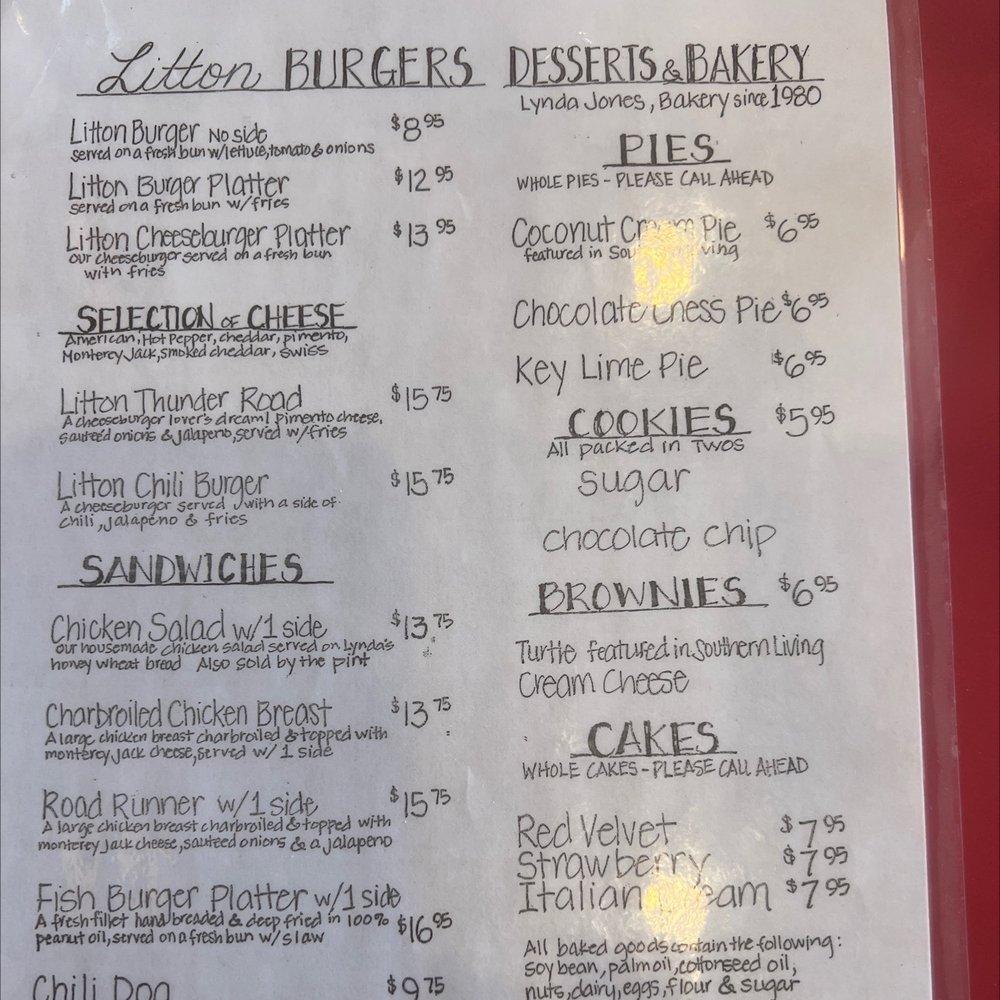 Litton BURGERS
Litton Burger No side $8.95
served on a fresh bun w/lettuce, tomato & onions
Litton Burger Platter $12.95
served on a fresh bun w/fries
Litton Cheeseburger Platter $13.95
our cheeseburger served on a fresh bun
with fries
SELECTION OF CHEESE
American, Hot Pepper, cheddar, pimento,
Monterey Jack, smoked cheddar, swiss
Litton Thunder Road $15.75
A cheeseburger lover's dream! Pimento cheese,
sauteéd onions & jalapeno, served w/fries
Litton Chili Burger $15.75
A cheeseburger served with a side of
chili, jalapeno & fries
SANDWICHES
Chicken Salad w/1 side $13.75
our housemade chicken salad served on Lynda's
honey wheat bread Also sold by the pint
Charbroiled Chicken Breast $13.75
A large chicken breast charbroiled & topped with
monterey jack cheese, served w/ 1 side
Road Runner w/1 side $15.75
A large chicken breast charbroiled & topped with
monterey jack cheese, sauteed onions & a jalapeno
Fish Burger Platter w/1 side
A fresh fillet hand breaded & deep fried in 100% $16.95
peanut oil, served on a fresh bun w/slaw
Chili Dog $9.75
DESSERTS & BAKERY
Lynda Jones, Bakery since 1980
PIES
WHOLE PIES - PLEASE CALL AHEAD
Coconut Cream Pie $6.95
featured in
Chocolate Chess Pie $6.95
Key Lime Pie $6.95
COOKIES $5.95
All packed in Twos
sugar
chocolate chip
BROWNIES $6.95
Turtle featured in Southern Living
Cream Cheese
CAKES
WHOLE CAKES - PLEASE CALL AHEAD
Red Velvet $7.95
Strawberry $7.95
Italian Cream $7.95
All baked goods contain the following:
soybean, palm oil, cottonseed oil,
nuts, dairy, eggs, flour & sugar